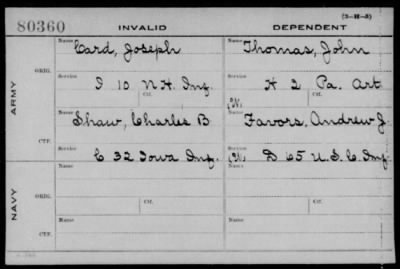 (3-H-3)
80360 INVALID DEPENDENT
ARMY
NAVY
ORIG.
CTF.
ORIG.
CTF.
Name Card, Joseph Name Thomas, John
Service I 10 N.H. Inf. Service H 2 Pa. Art
Ctf. Ctf. (W)
Name Shaw, Charles B Name Favors, Andrew J.
Service C 32 Iowa Inf. Service (W) D 65 U.S.C. Inf
Name Name
Ctf. Ctf.
Name Name